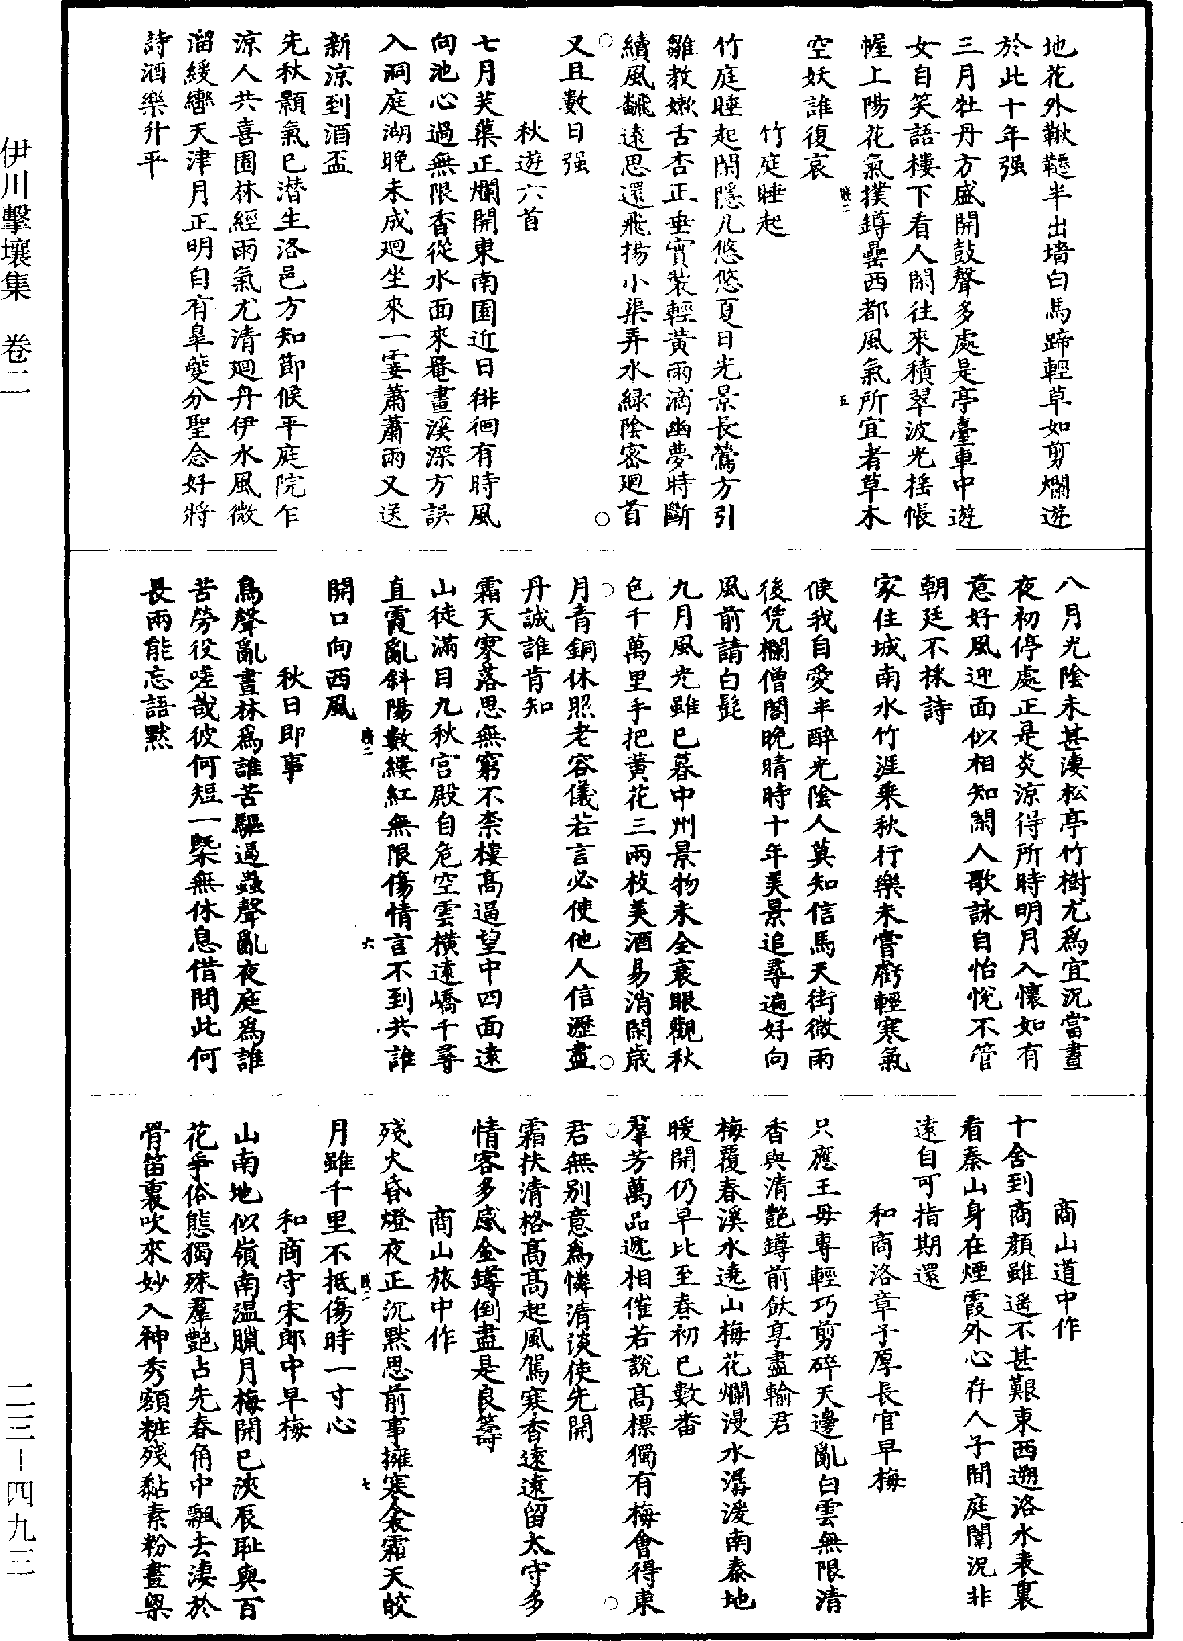 地花外鞦韆半出墻白馬蹄輕草如剪爛遊
於此十年强
三月牡丹方盛開鼓聲多處是亭臺車中遊
女自笑語樓下看人閒往來積翠波光搖帳
幄上陽花氣撲罇罍西都風氣所宜者草木
空妖誰復哀
竹庭睡起
竹庭睡起閒隱几悠悠夏日光景長鶯方引
雛教嫩舌杏正垂實裝輕黃雨滴幽夢時斷
續風飜遠思還飛揚小渠弄水綠陰密廻首
又且數日强
秋遊六首
七月芙蕖正爛開東南園近日徘徊有時風
向池心過無限香從水面來罨畫溪深方誤
入洞庭湖晚未成廻坐來一霎蕭蕭雨又送
新涼到酒盃
先秋顥氣已潛生洛邑方知節候平庭院乍
涼人共喜園林經雨氣尤清廻舟伊水風微
溜緩轡天津月正明自有皐夔分聖念好將
詩酒樂升平
八月光陰未甚淒松亭竹樹尤爲宜沉當晝
夜初停處正是炎涼得所時明月入懷如有
意好風迎面似相知閒人歌詠自怡悅不管
朝廷不採詩
家住城南水竹涯乘秋行樂未嘗虧輕寒氣
候我自愛半醉光陰人莫知信馬天街微雨
後凭欄僧閣晚晴時十年美景追尋遍好向
風前請白髭
九月風光雖已暮中州景物未全衰眼觀秋
色千萬里手把黃花三兩枝美酒易消閒歲
月青銅休照老容儀若言必使他人信瀝盡
丹誠誰肯知
霜天寥落思無窮不柰樓高逼望中四面遠
山徒滿目九秋宮殿自危空雲橫遠嶠千尋
直霞亂斜陽數縷紅無限傷情言不到共誰
開口向西風
秋日即事
鳥聲亂晝林爲誰苦驅逼蟲聲亂夜庭爲誰
苦勞役嗟哉彼何短一槩無休息借問此何
長兩能忘語默
商山道中作
十舍到商顏雖遥不甚艱東西遡洛水表裏
看秦山身在煙霞外心存人子間庭闈況非
遠自可指期還
和商洛章子厚長官早梅
只應王毋專輕巧剪碎天邊亂白雲無限清
香與清艷罇前飲享盡輸君
梅覆春溪水遶山梅花爛漫水潺湲南秦地
暖開仍早比至春初已數番
羣芳萬品遞相催若說高標獨有梅會得東
君無別意爲憐清淡使先開
霜扶清格高高起風駕寒香遠遠留太守多
情客多感金罇倒盡是良籌
商山旅中作
殘火昏燈夜正沉默思前事擁寒衾霜天皎
月雖千里不抵傷時一寸心
和商守宋郎中早梅
山南地似嶺南温臘月梅開已浹辰恥與百
花爭俗態獨殊羣艷占先春角中飄去淒於
骨笛裏吹來妙入神秀額粧殘黏素粉畫梁
伊川擊壤集　卷二
二三－四九三